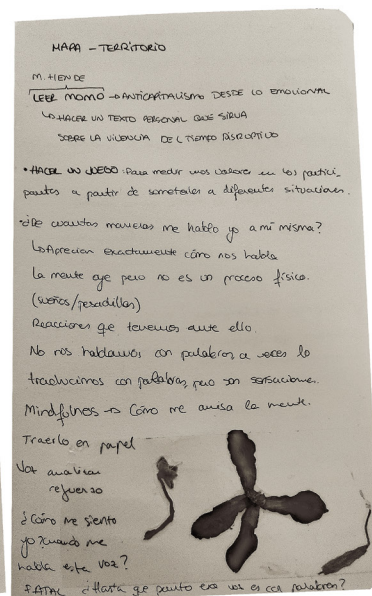 MAPA - TERRITORIO
M. HENDE
LEER MOMO → ANTICAPITALISMO DESDE LO EMOCIONAL
↳ HACER UN TEXTO PERSONAL QUE SIRVA
SOBRE LA VIVENCIA DEL TIEMPO DISRUPTIVO
• HACER UN JUEGO: Para medir unos valores en los partici-
pantes a partir de someterles a diferentes situaciones.
¿De cuantas maneras me hablo yo a mí misma?
↳ Apreciar exactamente cómo nos habla
la mente oye pero no es un proceso físico.
(sueños/pesadillas)
Reacciones que tenemos ante ello.
No nos hablamos con palabras, a veces lo
traducimos con palabras, pero son sensaciones.
Mindfulness → Cómo me avisa la mente.
Traerlo en papel
Voz analizar
refuerzo
¿Cómo me siento
yo cuando me
habla esta voz?
FATAL ¿Hasta que punto esa voz es con palabras?